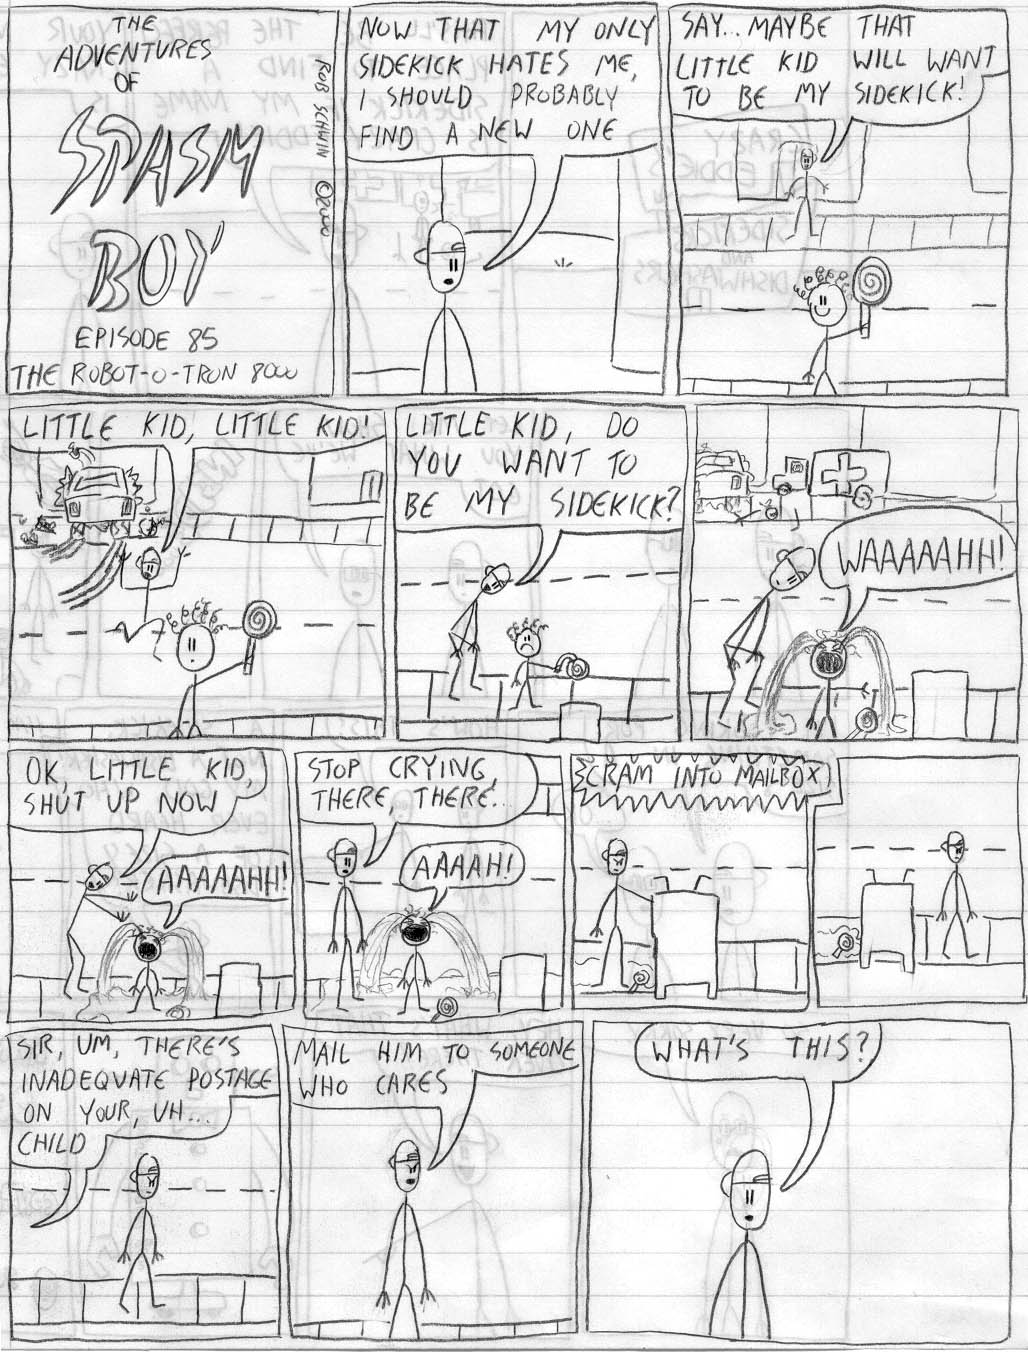 THE
ADVENTURES
OF
SPASM
BOY
EPISODE 85
THE ROBOT-O-TRON 8000
ROB SCHWIN ©2000
NOW THAT MY ONLY
SIDEKICK HATES ME,
I SHOULD PROBABLY
FIND A NEW ONE
SAY... MAYBE THAT
LITTLE KID WILL WANT
TO BE MY SIDEKICK!
LITTLE KID, LITTLE KID!
LITTLE KID, DO
YOU WANT TO
BE MY SIDEKICK?
WAAAAAHH!
OK, LITTLE KID,
SHUT UP NOW
AAAAAHH!
STOP CRYING,
THERE, THERE...
AAAAH!
SCRAM INTO MAILBOX
SIR, UM, THERE'S
INADEQUATE POSTAGE
ON YOUR, UH...
CHILD
MAIL HIM TO SOMEONE
WHO CARES
WHAT'S THIS?